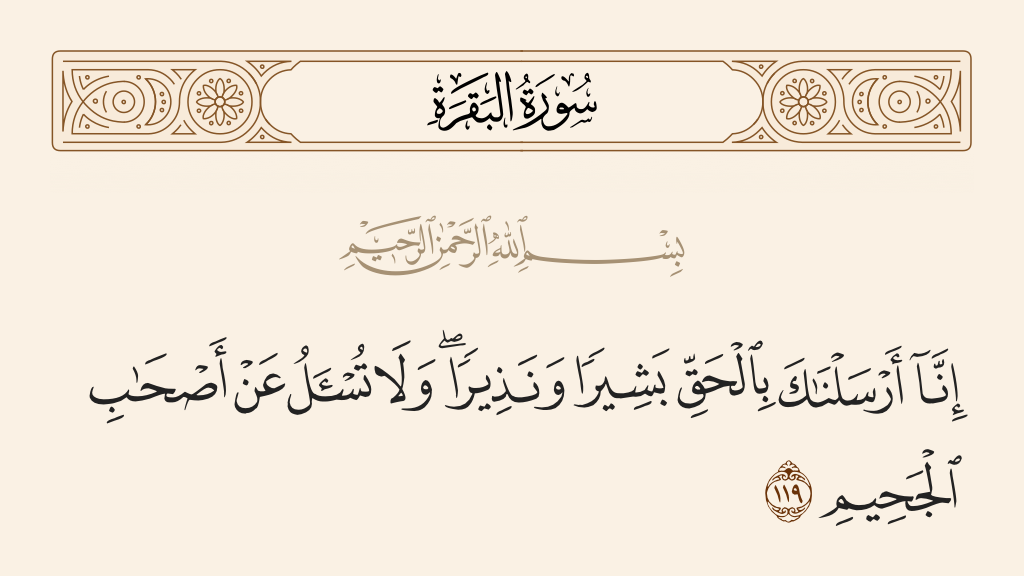 سُورَةُ البَقَرَةِ
بِسْمِ ٱللَّهِ ٱلرَّحْمَٰنِ ٱلرَّحِيمِ
إِنَّآ أَرْسَلْنَٰكَ بِٱلْحَقِّ بَشِيرًا وَنَذِيرًا ۖ وَلَا تُسْـَٔلُ عَنْ أَصْحَٰبِ
ٱلْجَحِيمِ ١١٩